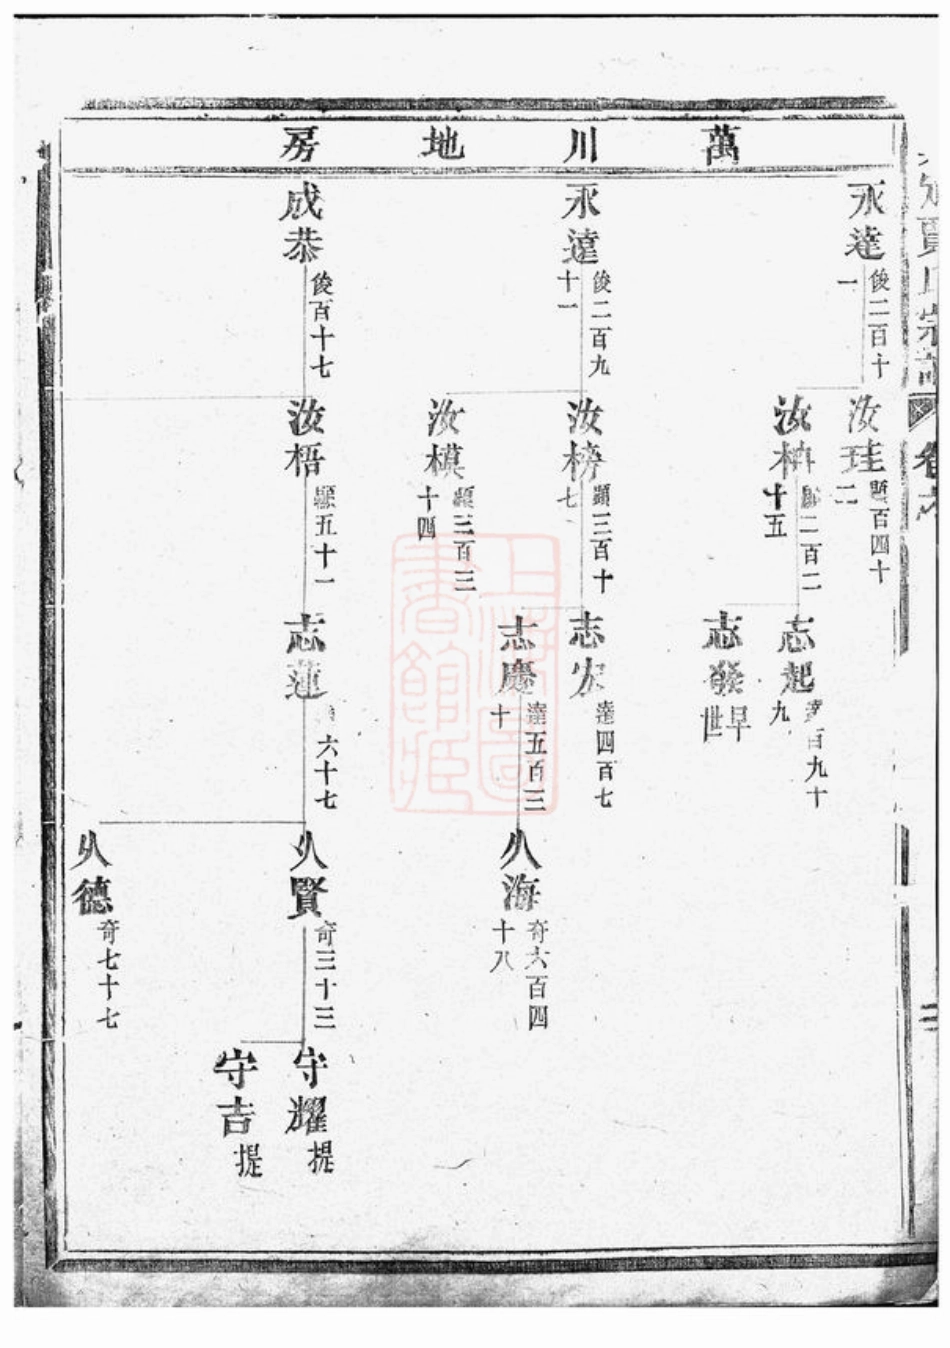 萬川地房
永達
俊二百十
一
汝珪
顯百四十
二
汝楠
顯二百二
十五
志起
達百九十
九
志發
早世
永達
俊二百九
十一
汝榜
顯三百十
七
志宏
達四百七
志慶
達五百三
十
以海
奇六百四
十八
汝模
顯三百三
十四
成恭
俊百十七
汝梧
顯五十一
志蓮
六十七
以賢
奇三十三
守耀
提
守吉
提
以德
奇七十七
上海圖書館藏